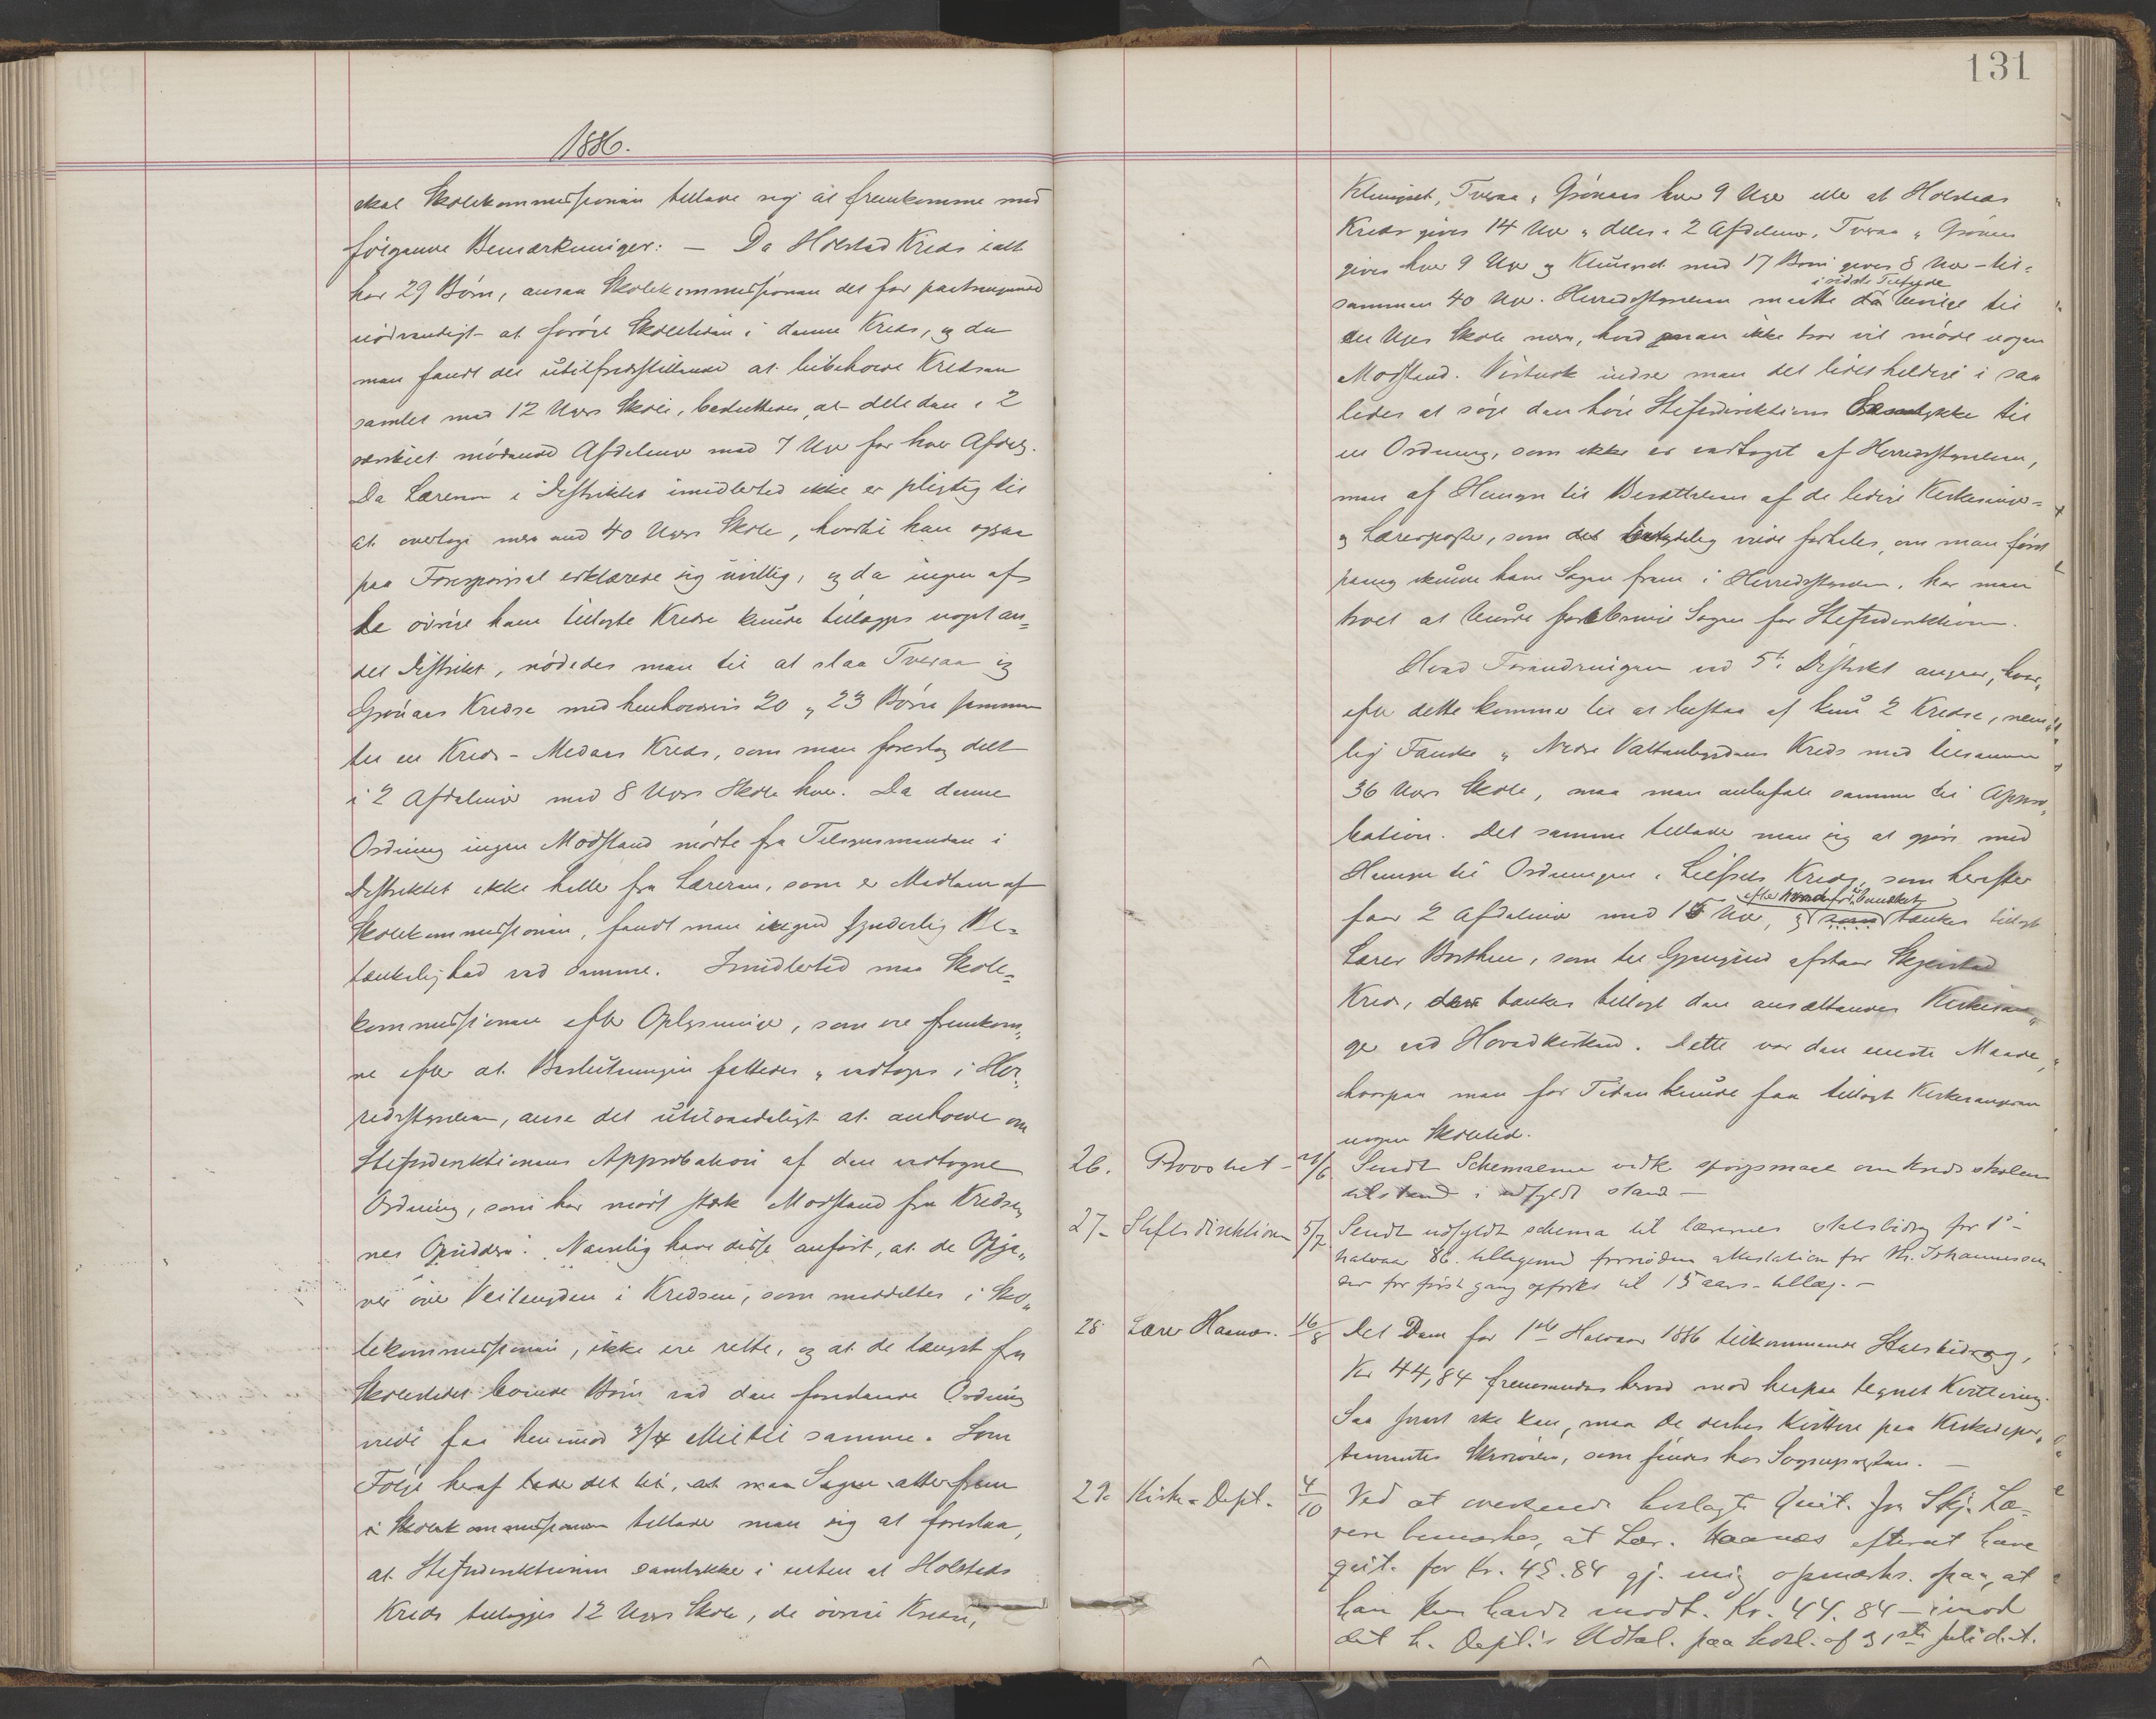 1886.
skal Skolekommissionen tillade sig at fremkomme med
følgende Bemærkninger: — Da Holstad Kreds ialt
har 29 Børn, ansaa Skolekommissionen det for paatrængende
nødvendigt at forøge Skoletiden i denne Kreds, og da
man fandt det utilfredsstillende at bibeholde Kredsen
samlet med 12 Ugers Skole, besluttedes, at dele den i 2
særskilt mødende Afdelinger med 7 Uger for hver Afdelg.
Da Læreren i Distriktet imidlertid ikke er pligtig til
at overtage mer end 40 Ugers Skole, hvortil han ogsaa
paa Forespørgsel erklærede sig uvillig, og da ingen af
de øvrige ham tillagte Kredse kunde tillægges noget an=
det Distrikt, nødedes man til at slaa Tveraa og
Grønaas Kredse med henholdsvis 20 og 23 Børn sammen
til en Kreds - Medaas Kreds, som man foreslog delt
i 2 Afdelinger med 8 Ugers Skole hver. Da denne
Ordning ingen Modstand mødte fra Tilsynsmanden i
Distriktet ikke heller fra Læreren, som er Medlem af
Skolekommissionen, fandt man ingen synderlig Be=
tænkelighed ved samme. Imidlertid maa Skole=
kommissionen efter Oplysninger, som ere fremkom=
ne efter at Beslutningen fattedes og vedtoges i Her=
redsstyrelsen, anse det utilraadeligt at anholde om
Stiftsdirektionens Approbation af den vedtagne
Ordning, som har mødt stærk Modstand fra Kredse=
nes Opsiddere. Nemlig have disse anført, at de Opga=
ver over Veilengden i Kredsen, som meddeltes i Sko=
lekommissionen, ikke ere rette, og at de længst fra
Skolestedet boende Børn ved den forandrede Ordning
vilde faa henimod 3/4 Mil til samme. Som
Følge heraf lader det til, at man Sagen atter frem
i Skolekommissionen tillader man sig at foreslaa,
at Stiftsdirektionen samtykker i enten at Holstads
Kreds tillægges 12 Ugers Skole, de øvrige Kredse,
131
Klungset, Tveraa og Grønaas hver 9 Uger eller at Holstads
Kreds gives 14 Uger og deles i 2 Afdelinger, Tveraa og Grønaas
gives hver 9 Uger og Klungset med 17 Børn gives 8 Uger - til=
i sidste Tilfælde
sammen 40 Uger. Herredsstyrelsen maatte da bevilge til
en Uges Skole mere, hvad man ikke tror vil møde nogen
Modstand. Vistnok indser man det lidet heldige i saa
ledes at søge den høie Stiftsdirektions Samtykke til
en Ordning, som ikke er vedtaget af Herredsstyrelsen,
men af Hensyn til Besættelsen af de ledige Kirkesanger=
og Lærerposter, som det betydelig vilde forhales, om man først
paany skulde have Sagen frem i Herredsstyrelsen, har man
troet at burde foredrage Sagen for Stiftsdirektionen.
Hvad Forandringen ved 5te Distrikt angaaer, hvor=
efter dette kommer til at bestaa af kun 2 Kredse, nem=
lig Fauske og Nedre Vattenbygdens Kreds med tilsammen
36 Ugers Skole, maa man anbefale samme til Appro=
bation. Det samme tillader man sig at gjøre med
Hensyn til Ordningen i Leifsets Kreds, som herefter
faar 2 Afdelinger med 15 Uger, og som tænkes tillagt
Lærer Bosthen, som til Gjengjæld afstaar Skjerstad
Kreds, der tænkes tillagt den ansættende Kirkesan=
ger ved Hovedkirken. Dette var den eneste Maade,
hvorpaa man for Tiden kunde faa tillagt Kirkesangeren
nogen Skoletid.
26. Provstiet - 21/6 Sendt Schemaerne vedk. spørgsmaal om kredsskolens
tilstand i udfyldt stand —
27. Stiftsdirektionen 5/7 Sendt udfyldt schema til lærernes statsbidrag for 1ste
halvaar 86. tilligemed fornøden attestation for Hr. Johannesen
der for første gang opføres til 15 aars-tillæg. —
28 Lærer Haanæs. 16/8 Det Dem for 1ste Halvaar 1886 tilkommende Statsbidrag,
Kr 44,84 fremsendes herved mod herpaa tegnet Kvittering.
Saa snart ske kan, maa De derhos kvittere paa Kirkedepar=
tementets Skrivelse, som findes hos Sognepresten. —
29. Kirke-Dept. 4/10 Ved at oversende beslagte Quit. fra Skj. Læ=
rere bemærkes, at Lær. Haanæs efterat have
quit. for Kr. 45.84 gj. mig opmærks. paa, at
han kun havde modt. Kr. 44.84 - imod
det h. Dept.'s Udtal. paa hosl. af 31ste Juli d.A.